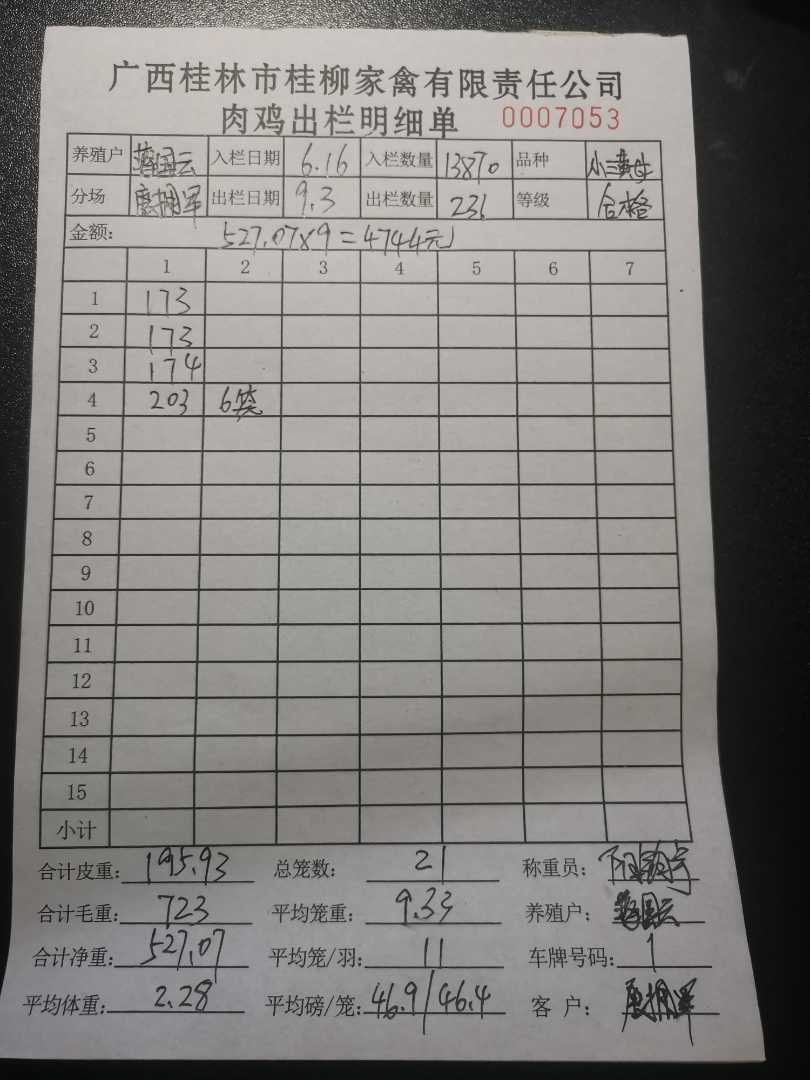 广西桂林市桂柳家禽有限责任公司
肉鸡出栏明细单 0007053
养殖户 入栏日期 6.16 入栏数量 13870 品种
分场 出栏日期 9.3 出栏数量 231 等级 合格
金额: 527.07×9=4744元
1 2 3 4 5 6 7
1 173
2 173
3 174
4 203 6笼
5
6
7
8
9
10
11
12
13
14
15
小计
合计皮重: 195.93 总笼数: 21 称重员:
合计毛重: 723 平均笼重: 9.33 养殖户:
合计净重: 527.07 平均笼/羽: 11 车牌号码: 1
平均体重: 2.28 平均磅/笼: 46.9/46.4 客 户: